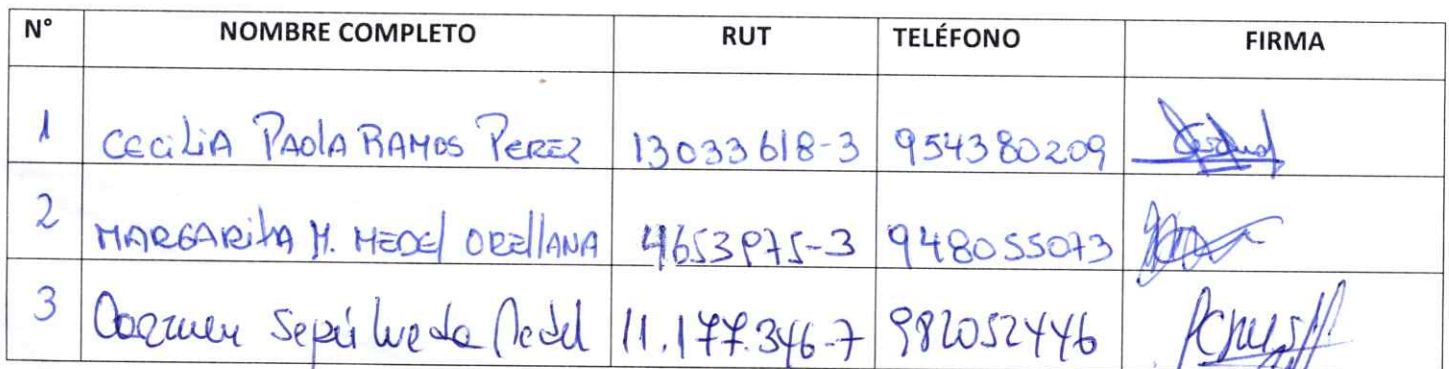 N° NOMBRE COMPLETO RUT TELÉFONO FIRMA
1 CECILIA PAOLA RAMOS PEREZ 13033618-3 954380209
2 MARGARITA M. MEDEL ORELLANA 4653975-3 948055073
3 Carmen Sepúlveda Medel 11.177.346-7 982052446